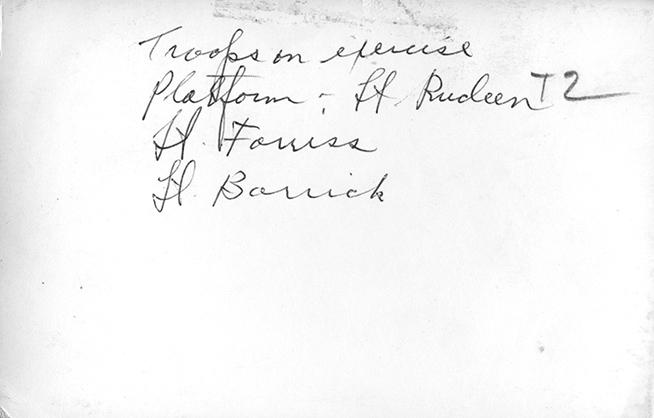 Troops on exercise
Platform: Lt Rudeen T2
Lt. Forriss
Lt. Borrick